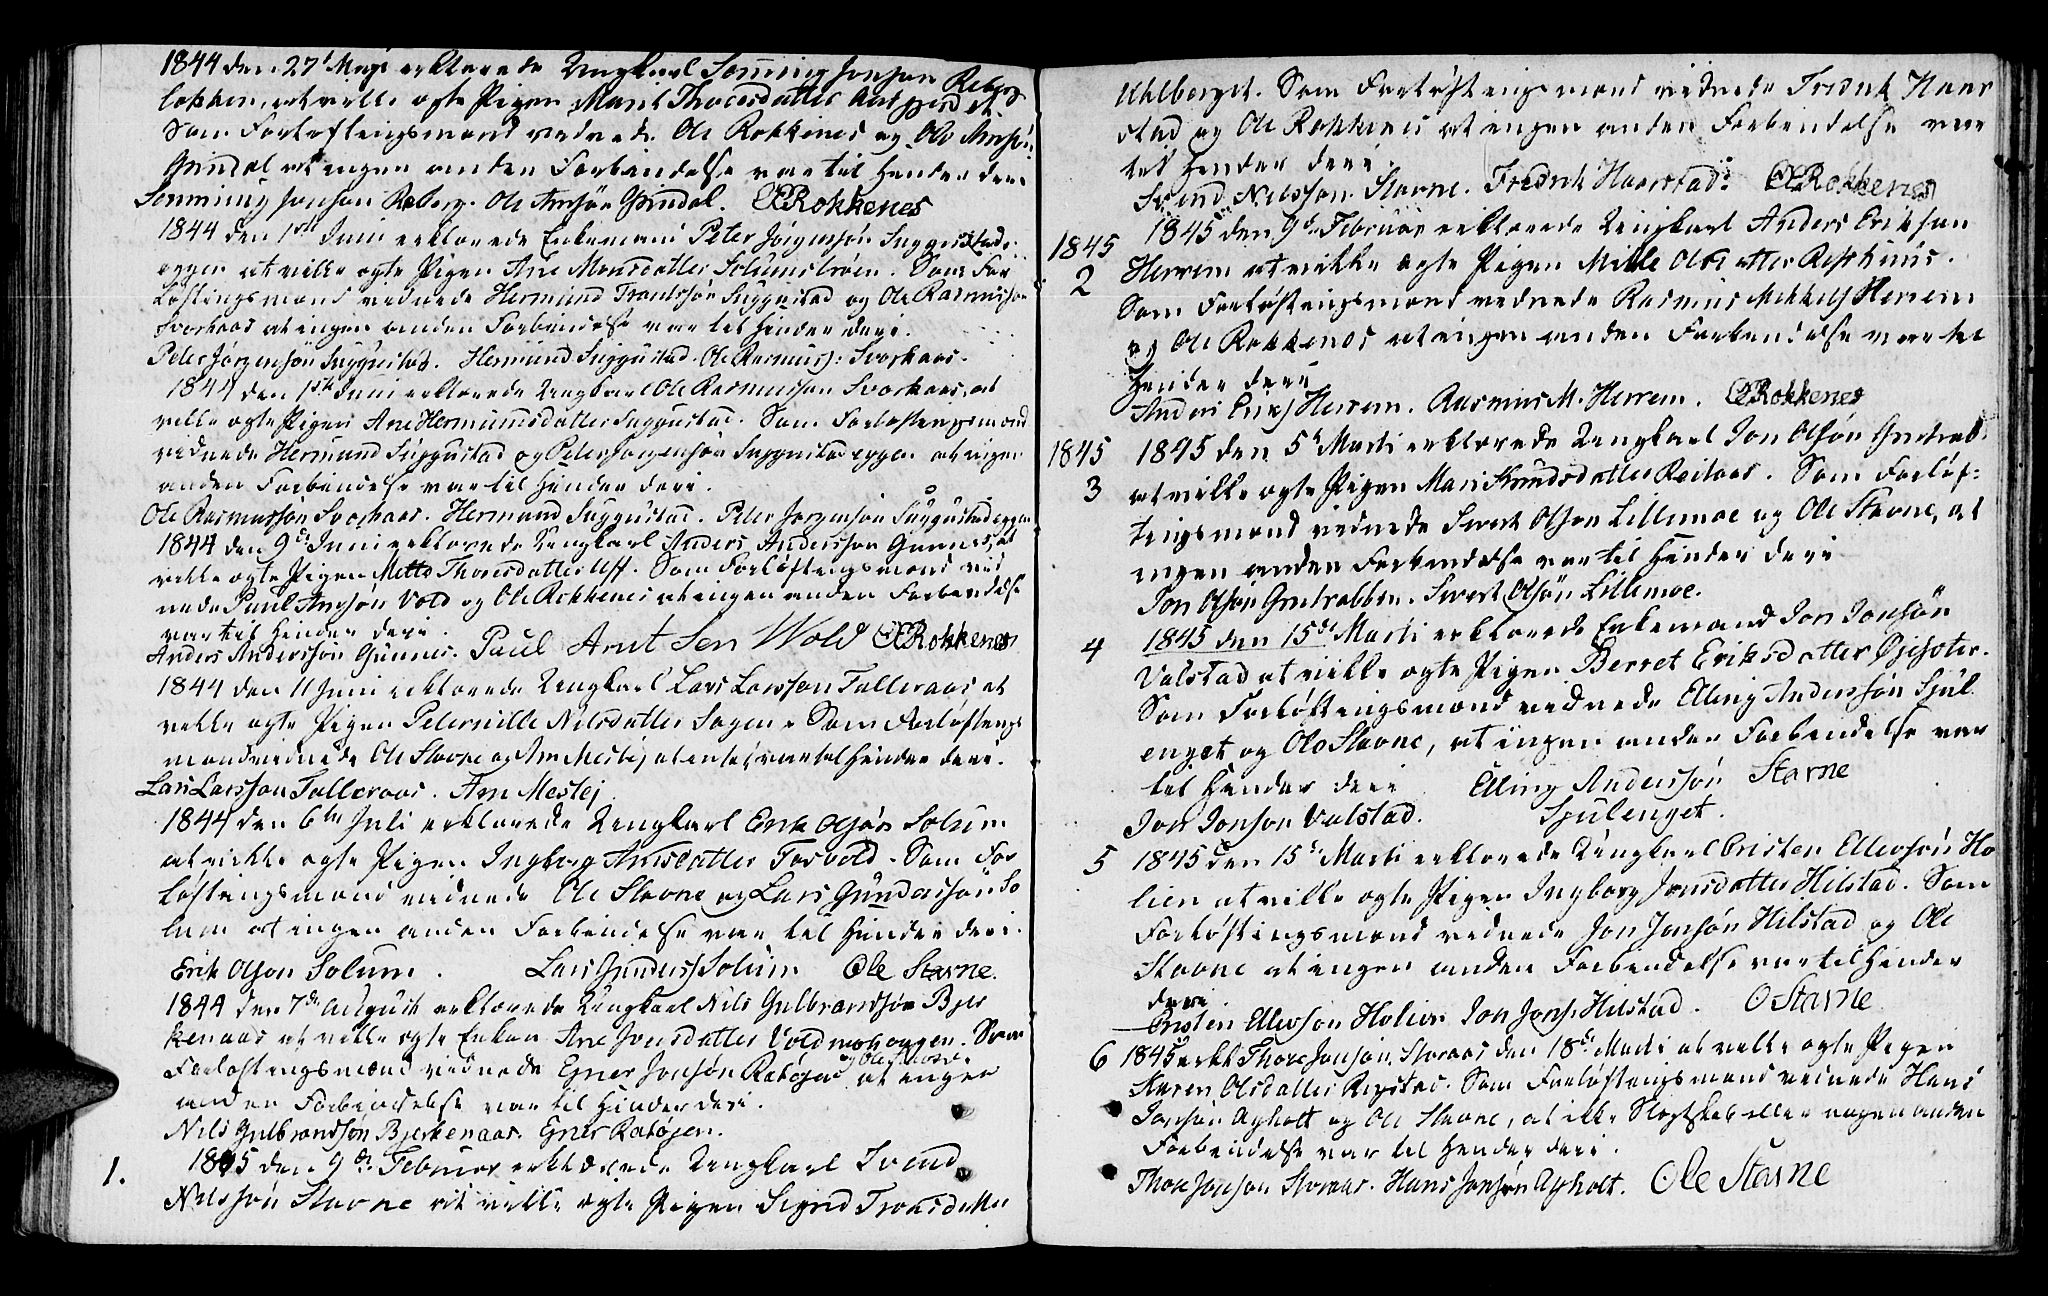 1844 den 27d Maji erklærede Ungkarl Semming Jonson Reberg
løkken, at ville egte Pigen Marit Thoresdatter
Som Forløftningsmænd vidnede Ole Rokkenes og Ole Arnsøn
Grindal at ingen anden Forbindelse var til Hinder deri
Semming Jonson Reberg. Ole Arnsøn Grindal. OERokkenes
1844 den 1ste Juni erklærede Enkemand Peter Jørgensøn Suggustads
eggen at ville egte Pigen Ane Monsdatter Solumsmoen. Som For
løftningsmænd vidnede Hermund Trondsøn Suggustad og Ole Rasmuson
Svorkaas at ingen anden Forbindelse var til Hinder deri.
Peter Jørgensøn Suggustad. Hermund Suggustad. Ole Rasmus: Svorkaas.
1844 den 1ste Juni erklærede Ungkarl Ole Rasmusson Svorkaas, at
ville egte Pigen Ane Hermundsdatter Suggustad. Som Forløftningsmænd
vidnede Hermund Suggustad og Peter Jørgensøn Suggustadeggen at ingen
anden Forbindelse var til Hinder deri.
Ole Rasmusson Svorkaas. Hermund Suggustad. Peter Jørgenson Suggustadeggen
1844 den 9de Juni erklærede Ungkarl Anders Anderssøn Gunnes, at
ville egte Pigen Mette Thoresdatter Uff. Som Forløftningsmænd vid
nede Paul Arnsøn Vold og Ole Rokkenes at ingen anden Forbindelse
var til Hinder deri.
Anders Anderssøn Gunnes. Paul Arnt Sen Wold OERokkenes
1844 den 11 Juni erklærede Ungkarl Lars Larsson Talleraas at
ville egte Pigen Peternille Nilsdatter Sogen. Som Forløftnings
mænd vidnede Ole Stavne og Arn Mestej, at intet var til Hinder deri.
Lars Larsson Talleraas. Arn Mestej
1844 den 6te Juli erklærede Ungkarl Erik Olsøn Solum
at ville egte Pigen Ingborg Arnsdatter Forvold. Som For
løftningsmænd vidnede Ole Stavne og Lars Gunderssøn So
lum at ingen anden Forbindelse var til Hinder deri.
Erik Olson Solum. Lars Gunders: Solum Ole Stavne.
1844 den 7de August erklærede Ungkarl Nils Gulbrandsøn Bjer
kenaas at ville egte Enken Ane Jonsdatter Voldmohaugen. Som
Forløftningsmænd vidnede Egner Jonsøn Ratøjen og Ole Stavne at ingen
anden Forbindelse var til Hinder deri.
Nils Gulbrandsøn Bjerkenaas. Egner Ratøjen.
1. 1845 den 9de Februar erklærede Ungkarl Svend
Nilssøn Stavne at ville egte Pigen Sigrid Tronsdatter
Uhlberget. Som Forløftningsmænd vidnede Fredrik Haar
stad og Ole Rokkenes at ingen anden Forbindelse var
til Hinder deri.
Svend Nilsson Stavne. Fredrik Haarstad. OERokkenes
1845 1845 den 9de Februar erklærede Ungkarl Anders Erikson
2 Herrem at ville egte Pigen Mille Olsdatter Reskhus.
Som Forløftningsmænd vidnede Rasmus Mikkels Herrem
og Ole Rokkenes at ingen anden Forbindelse var til
Hinder deri
Anders Eriks: Herrem. Rasmus M. Herrem. OERokkenes
1845 1845 den 5te Marti erklærede Ungkarl Jon Olsøn Grutrab.
3 at ville egte Pigen Mari Knudsdatter Reitaas. Som Forløf-
tingsmænd vidnede Sivert Olson Lillemoe og Ole Stavne, at
ingen anden Forbindelse var til Hinder deri
Jon Olsøn Grutrabben. Sivert Olsøn Lillemoe.
4 1845 den 15de Marti erklærede Enkemand Jon Jonsøn
Valstad at ville egte Pigen Berret Eriksdatter
Som Forløftningsmænd vidnede Elling Anderssøn Sjul
enget og Ole Stavne, at ingen anden Forbindelse var
til Hinder deri Elling Anderssøn Stavne
Jon Jonson Valstad. Sjulenget.
5 1845 den 15de Marti erklærede Ungkarl Cristen Ellevsøn Ho
lien at ville egte Pigen Ingborg Jonsdatter Hilstad. Som
Forløftningsmænd vidnede Jon Jonsøn Hilstad og Ole
Stavne at ingen anden Forbindelse var til Hinder
deri
Cristen Ellevson Holien Jon Jons: Hilstad. O Stavne
6 1845 erkl Thore Jonsøn Storaas den 18de Marti at ville egte Pigen
Karen Olsdatter Ryestad. Som Forløftningsmænd vidnede Hans
Jonsøn Ayholt og Ole Stavne, at ikke Slegtskab eller nogen anden
Forbindelse var til Hinder deri.
Thore Jonson Storaas. Hans Jonsøn Ayholt. Ole Stavne